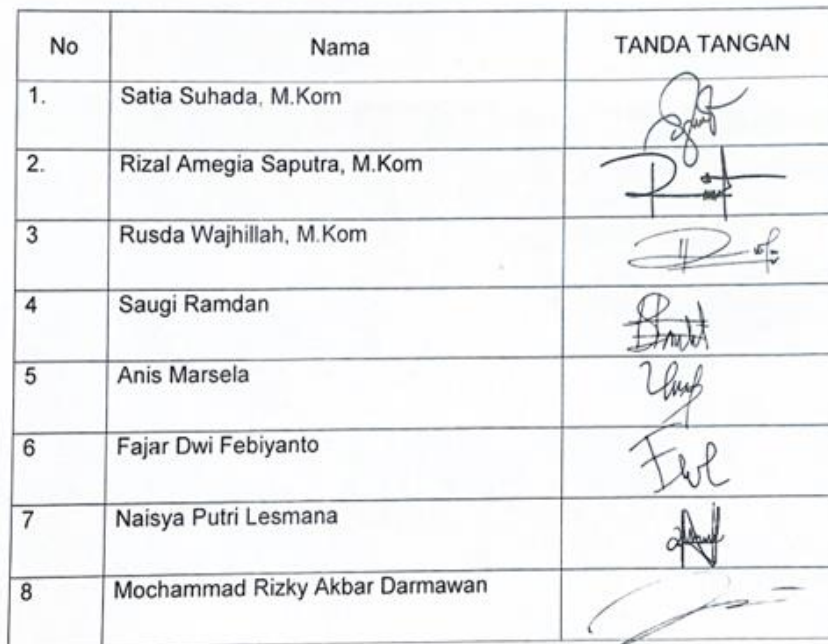 No Nama TANDA TANGAN
1. Satia Suhada, M.Kom
2. Rizal Amegia Saputra, M.Kom
3 Rusda Wajhillah, M.Kom
4 Saugi Ramdan
5 Anis Marsela
6 Fajar Dwi Febiyanto
7 Naisya Putri Lesmana
8 Mochammad Rizky Akbar Darmawan